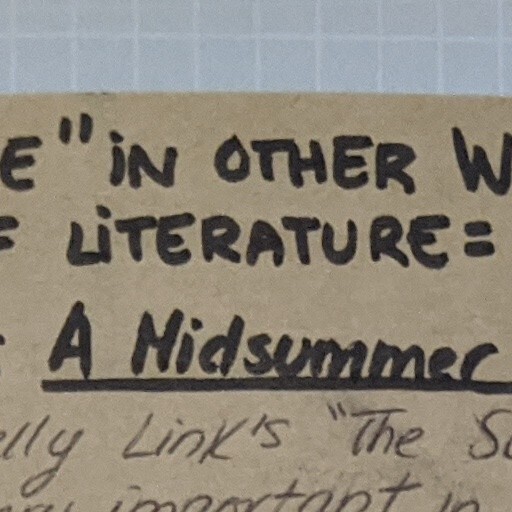 E" iN OTHER W
F LiTERATURE=
A Midsummer
elly Link's "The S
important in